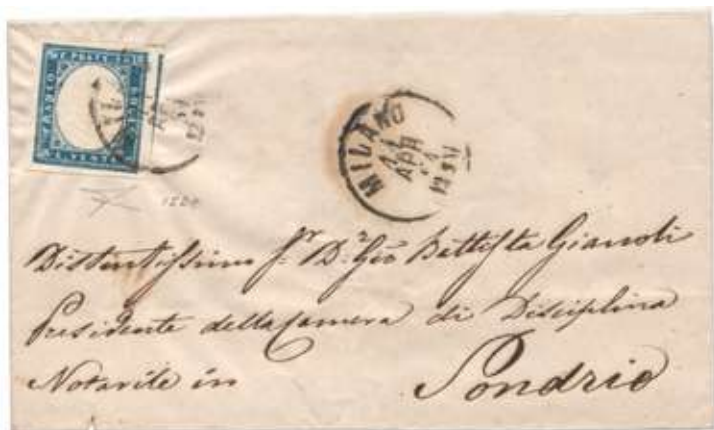 C. POSTE
MILANO
11
APR
61
12 M
Distintissimo Sr. Dr. Gio Battista Gianoli
Presidente della Camera di Disciplina
Notarile in
Sondrio